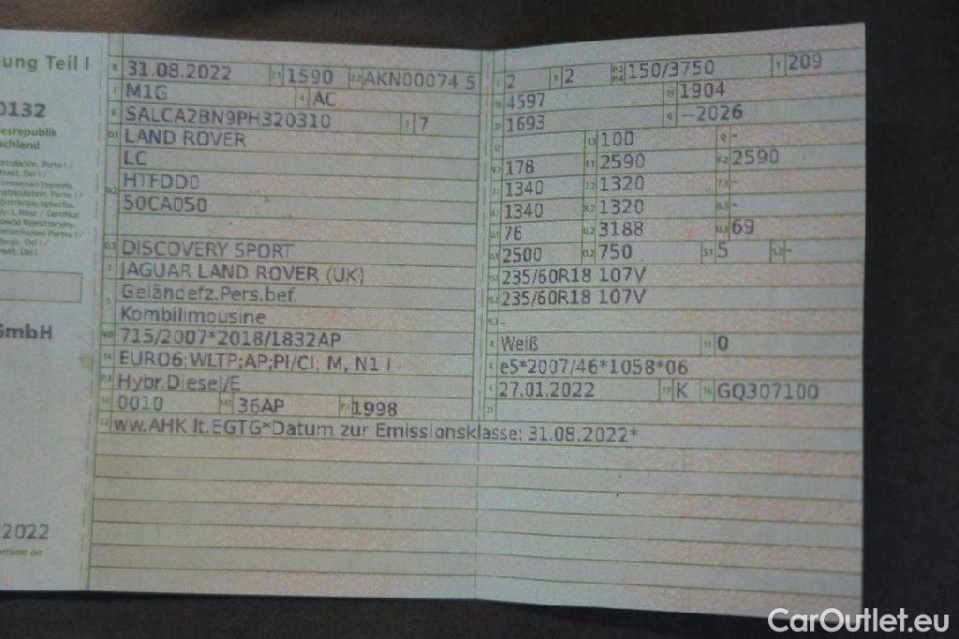 ung Teil I
0132
esrepublik
schland
GmbH
2022
B 31.08.2022 2.1 1590 2.2 AKN00074 5
J M1G 4 AC
E SALCA2BN9PH320310 3 7
D.1 LAND ROVER
D.2 LC
HTFDD0
50CA050
D.3 DISCOVERY SPORT
2 JAGUAR LAND ROVER (UK)
5 Geländefz.Pers.bef.
Kombilimousine
V.9 715/2007*2018/1832AP
14 EURO6;WLTP;AP;PI/CI; M, N1 I
P.3 Hybr.Diesel/E
10 0010 14.1 36AP P.1 1998
22 ww.AHK lt.EGTG*Datum zur Emissionsklasse: 31.08.2022*
L 2 9 2 P.2 P.4 150/3750 T 209
18 4597 19 1904
20 1693 G --2026
12 13 100 Q -
V.7 178 F.1 2590 F.2 2590
7.1 1340 7.2 1320 7.3 -
8.1 1340 8.2 1320 8.3 -
U.1 76 U.2 3188 U.3 69
O.1 2500 O.2 750 S.1 5 S.2 -
15.1 235/60R18 107V
15.2 235/60R18 107V
15.3 -
R Weiß 11 0
K e5*2007/46*1058*06
6 27.01.2022 17 K 16 GQ307100
21
CarOutlet.eu